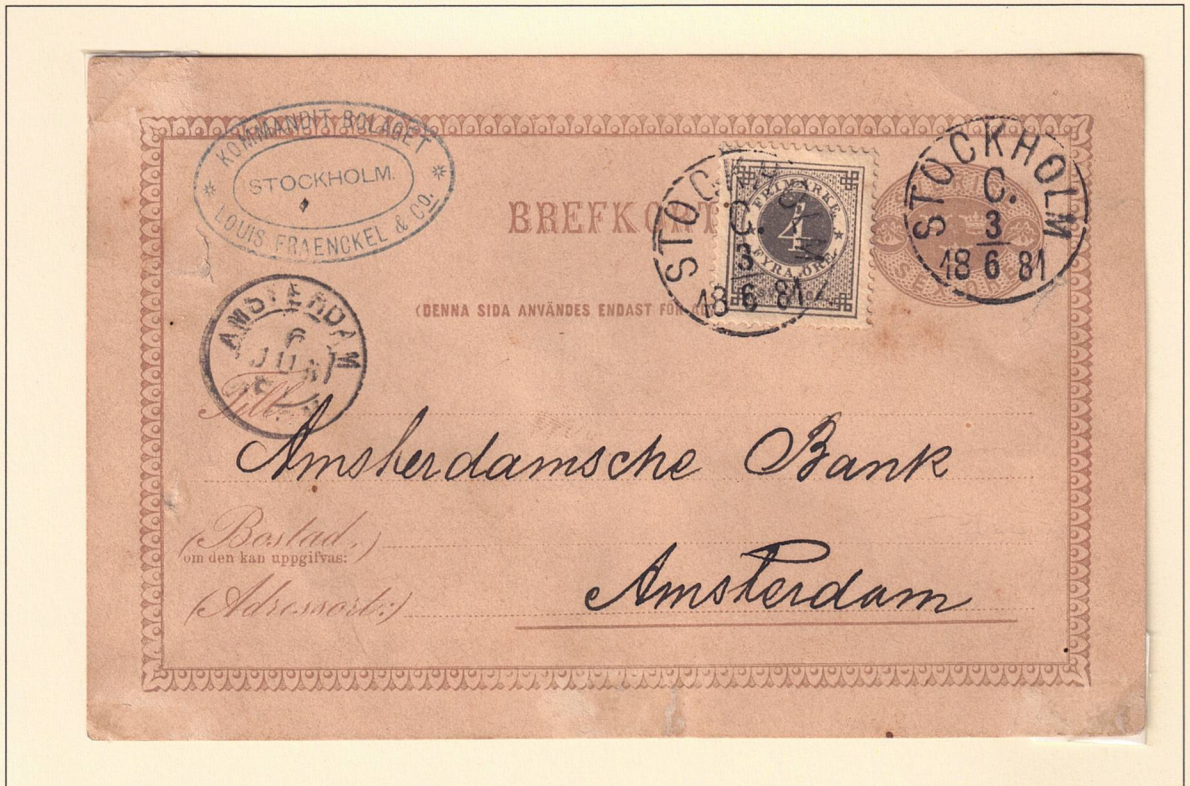 KOMMANDIT BOLAGET
STOCKHOLM.
LOUIS FRAENCKEL & Co.
BREFKORT
STOCKHOLM
C.
3
18 6 81
FRIMÄRKE
4
FYRA ÖRE
STOCKHOLM
C.
3
18 6 81
(DENNA SIDA ANVÄNDES ENDAST FÖR
AMSTERDAM
6
JUN
Till
Amsterdamsche Bank
(Bostad.)
om den kan uppgifvas:
Amsterdam
(Adressort:)